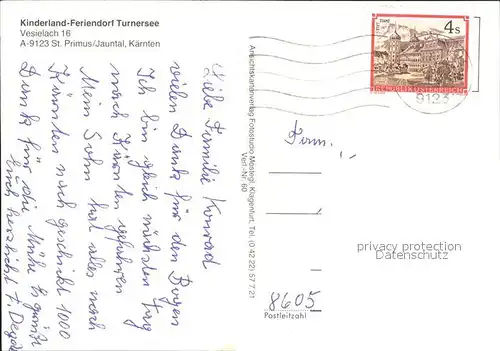 Kinderland-Feriendorf Turnersee
Vesielach 16
A-9123 St. Primus/Jauntal, Kärnten
Liebe Familie Konrad
vielen Dank für den Bogen
Ich bin gleich nächsten Tag
nach Kärnten gefahren
Mein Sohn hat alles nach
Kärnten nach geschickt 1000
Dank für die Mühe Es grüßt
Euch herzlichst
Ansichtskartenverlag Fotostudio Mossegl, Klagenfurt, Tel. (0 42 22) 57 7 21
Verl.-Nr. 60
STIFT STAMS
4s
REPUBLIK ÖSTERREICH
9123
Fam.
8605
Postleitzahl
privacy protection
Datenschutz